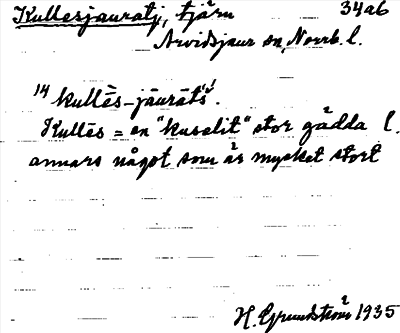 Kullesjauratj, tjärn 34a6
Arvidsjaur sn, Norrb. l.
14 kullēs-jäurātś.
Kullēs = en "kuselit" stor gädda l.
annars något som är mycket stort
H. Grundström 1935